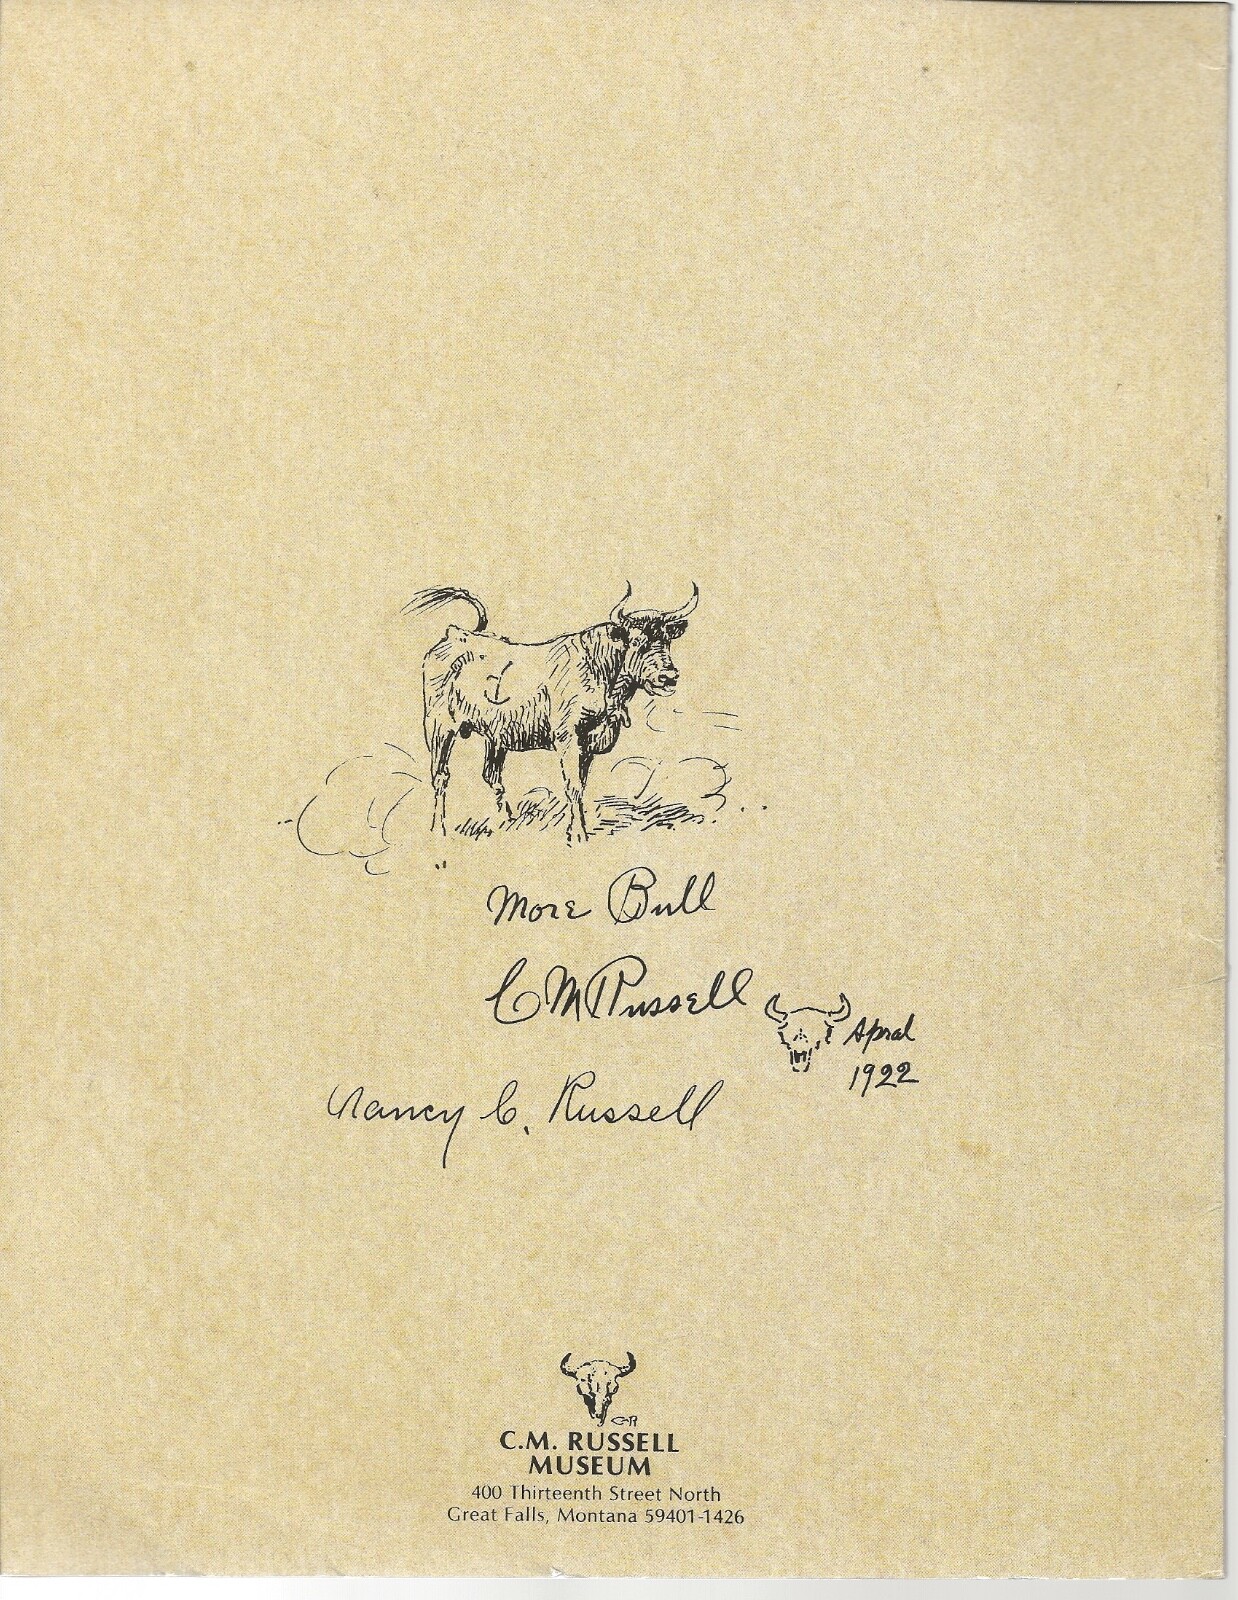 More Bull
C M Russell
Apral
1922
Nancy C. Russell
CMR
C.M. RUSSELL
MUSEUM
400 Thirteenth Street North
Great Falls, Montana 59401-1426